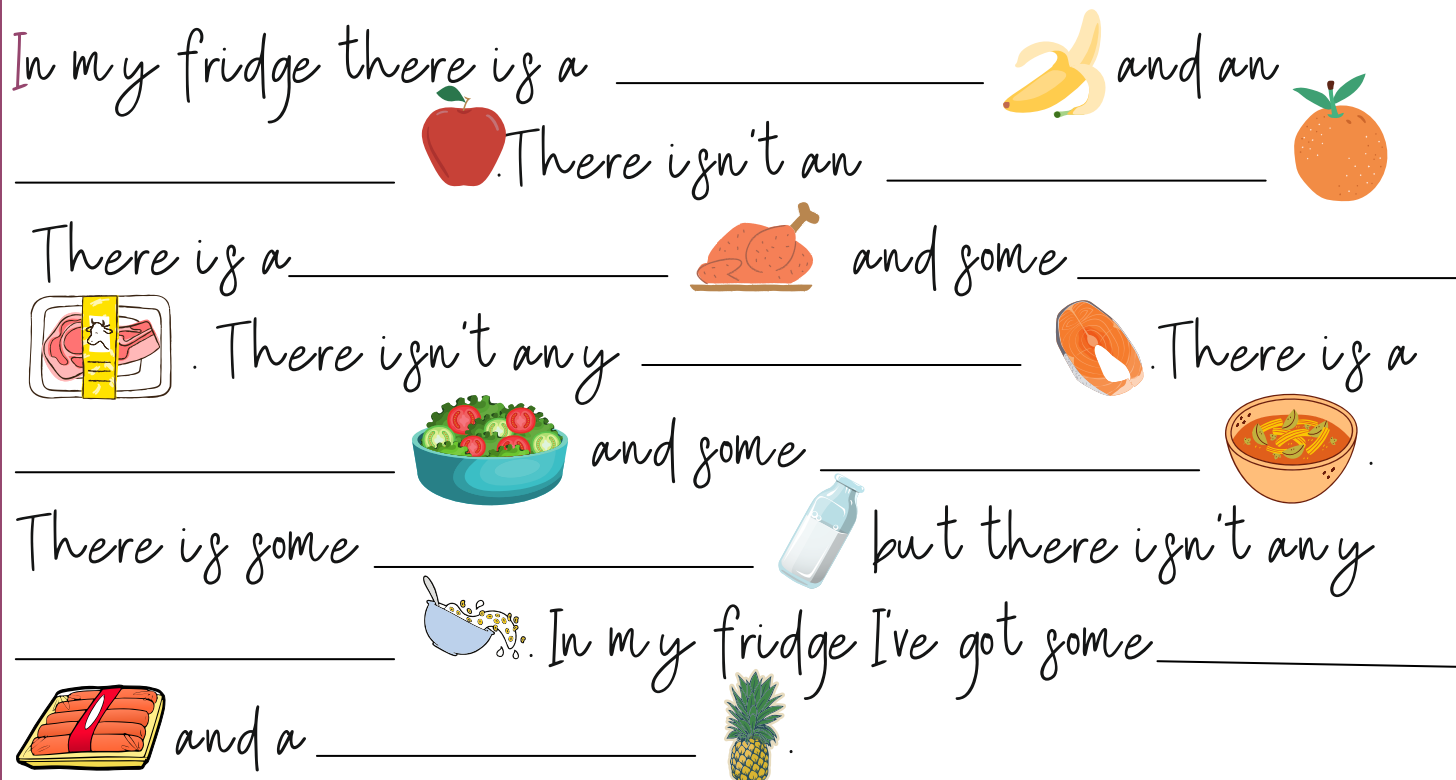 In my fridge there is a ____________ and an
____________ . There isn't an ____________
There is a ____________ and some ____________
. There isn't any ____________ . There is a
____________ and some ____________ .
There is some ____________ but there isn't any
____________ . In my fridge I've got some ____________
and a ____________ .